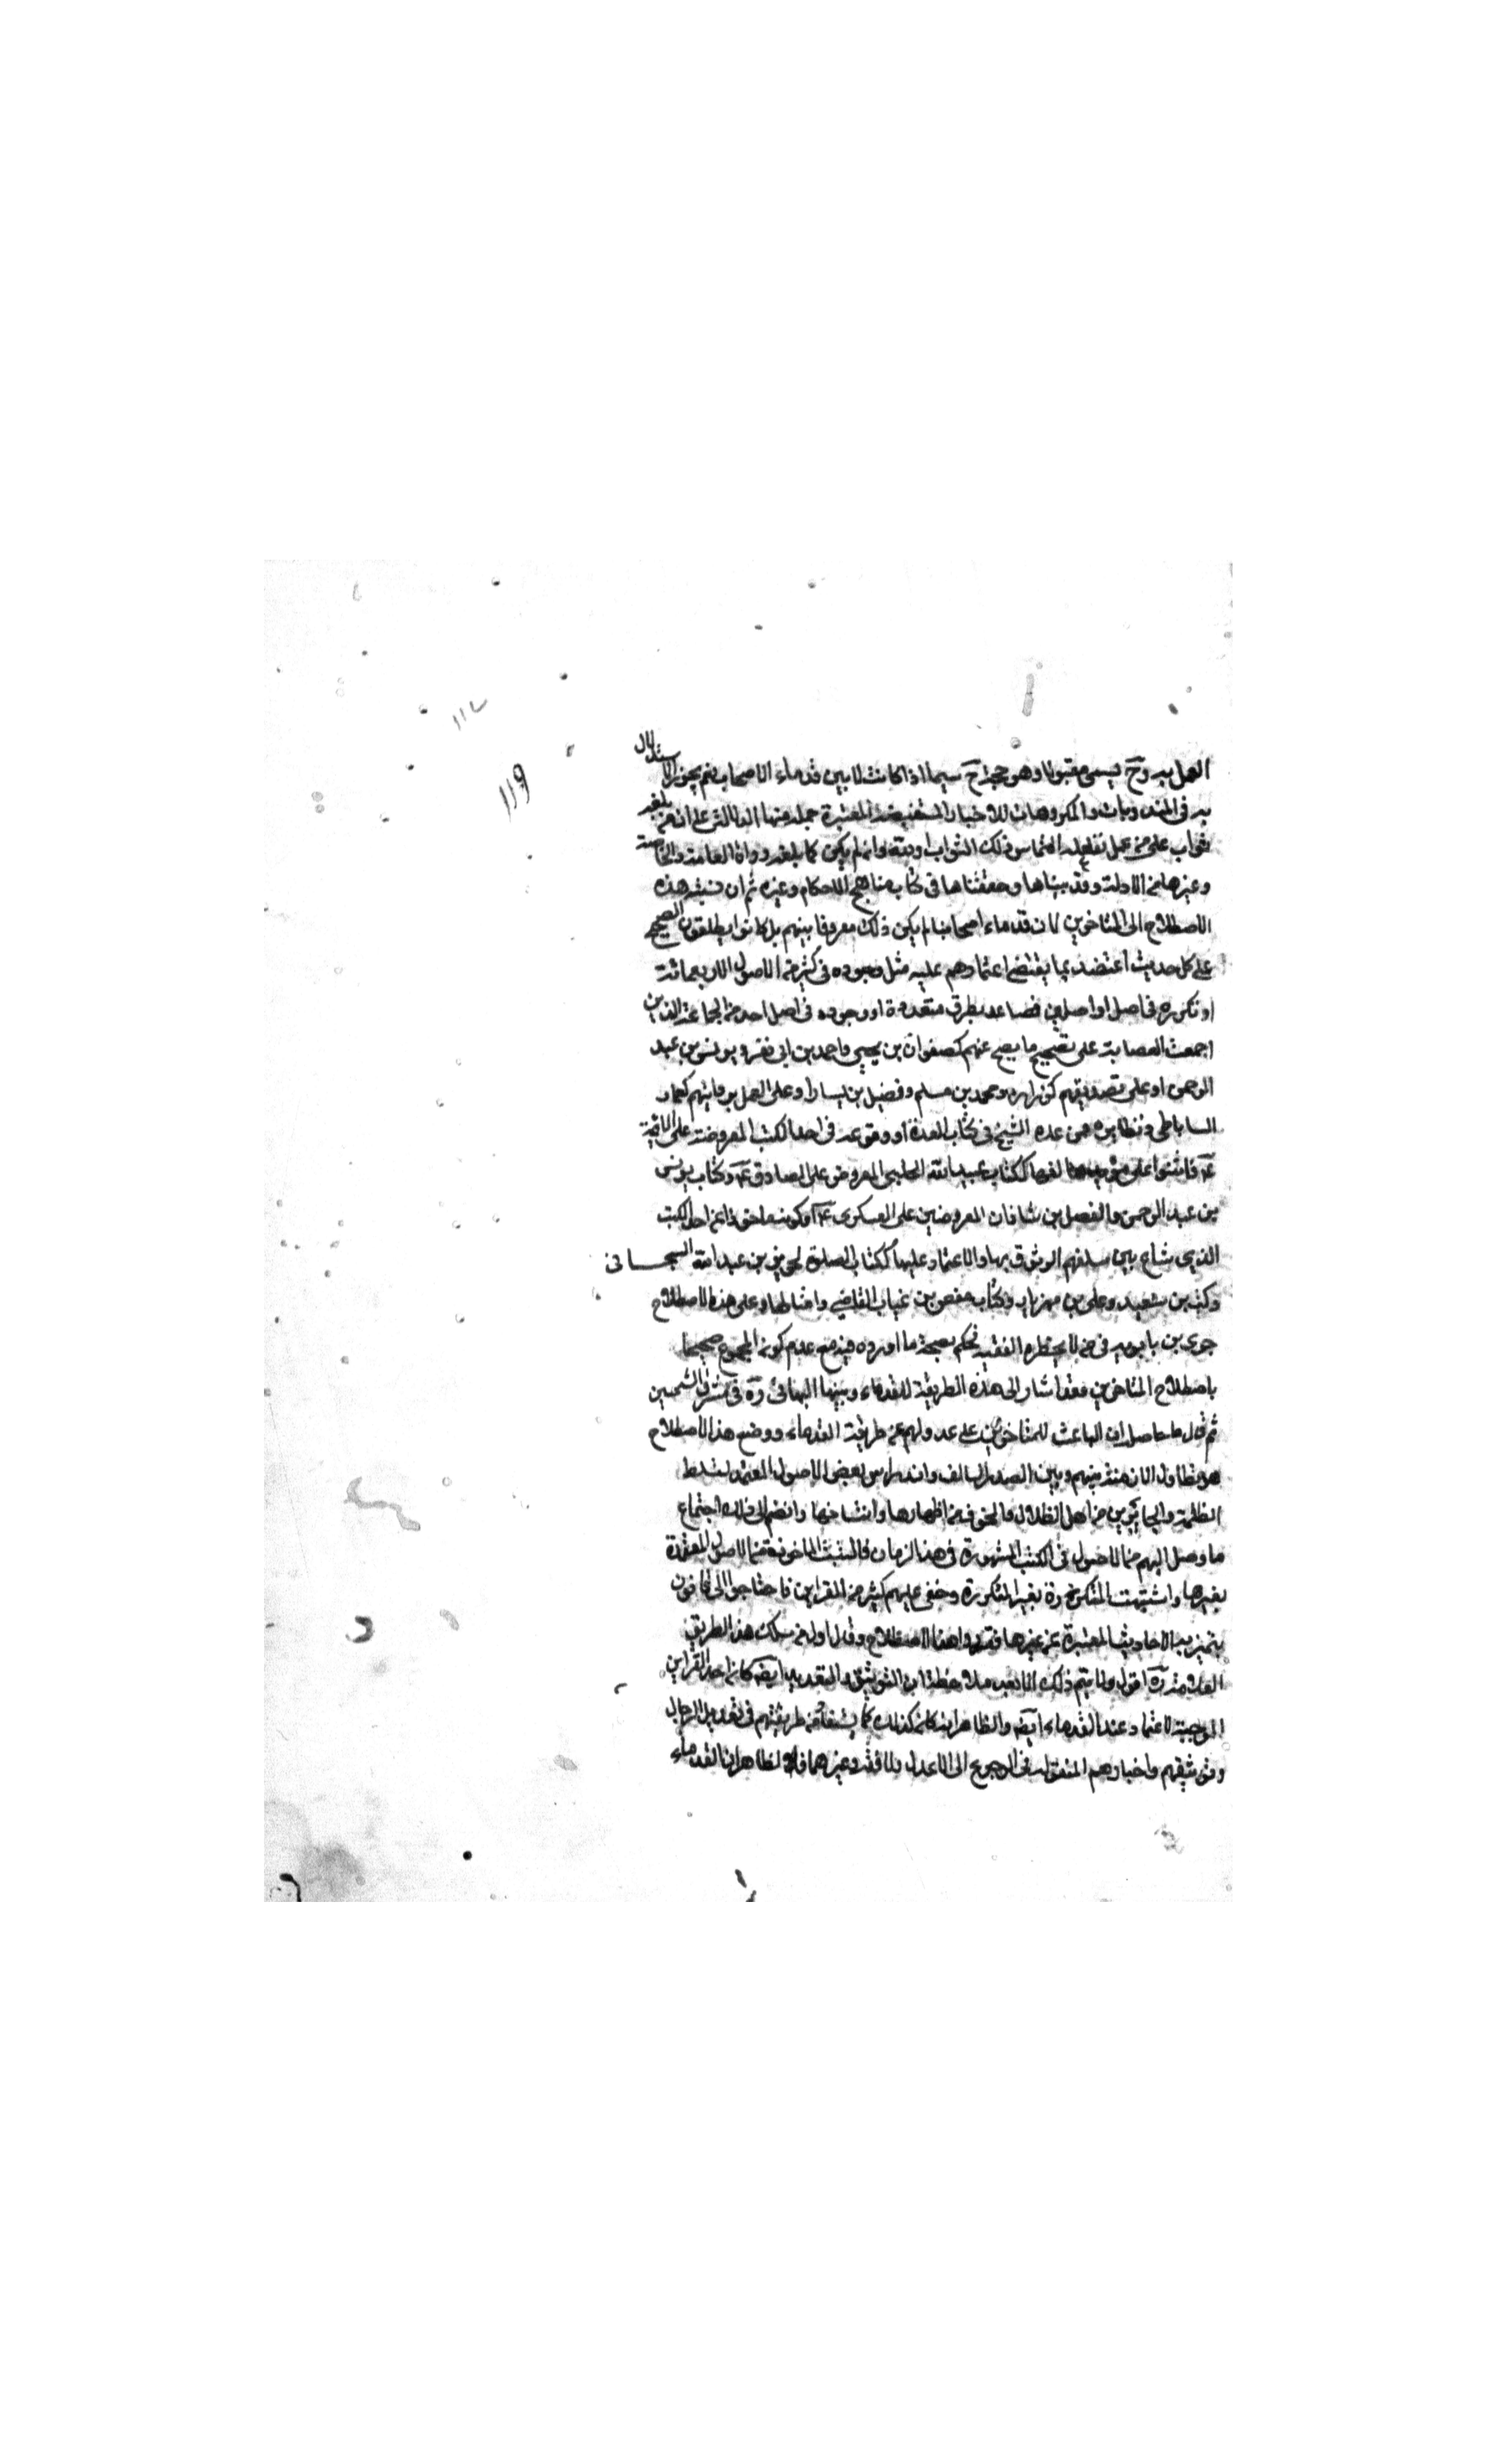 العمل به وحّ يسمى مقبولا وهو حجة حّ سيما اذا كانت لا بين قدماء الاصحاب نعم يجوز الاستدلال
به في المندوبات والمكروهات للاخبار المستفيضة المعتبرة جملة منها الدالة على ان من بلغه
ثواب على عمل ففعله التماس ذلك الثواب اوتيه وان لم يكن كما بلغه رواه العامة والخاصة
وغيرها من الادلة وقد بيناها وحققناها في كتاب مناهج الاحكام وغيره ثم ان نسبة هذه
الاصطلاح الى المتاخرين لان قدماء اصحابنا لم يكن ذلك معروفا بينهم بل كانوا يطلقون الصحيح
على كل حديث اعتضد بما يقتضي اعتمادهم عليه مثل وجوده في كثير من الاصول الاربعمائة
او تكرره في اصل او اصلين فصاعدا بطرق متعددة او وجوده في اصل احد من الجماعة الذين
اجمعت العصابة على تصحيح ما يصح عنهم كصفوان بن يحيى واحمد بن ابي نصر ويونس بن عبد
الرحمن او على تصديقهم كزرارة ومحمد بن مسلم وفضيل بن يسار او على العمل بروايتهم كعمار
الساباطي ونظايره ممن عده الشيخ في كتاب العدة او وقوعه في احد الكتب المعروضة على الائمة
عۤ فاثنوا على مؤلفها ككتاب عبيد الله الحلبي المعروض على الصادق عۤ وكتاب يونس
بن عبد الرحمن والفضل بن شاذان المعروضين على العسكري عۤ او كونه ماخوذا من احد الكتب
الذي شاع بين سلفهم الوثوق بها والاعتماد عليها ككتاب الصلوة لحريز بن عبد الله السجستاني
وكتب بن سعيد وعلي بن مهزيار وكتاب حفص بن غياث القاضي وامثالها وعلى هذه الاصطلاح
جرى بن بابويه في من لا يحضره الفقيه فحكم بصحة ما اورده فيه مع عدم كونه المجموع صحيحا
باصطلاح المتاخرين وقد اشار الى هذه الطريقة للقدماء وبينها البهائي رۤه في مشرق الشمسين
ثم قال ما حاصله ان الباعث للمتاخرين على عدولهم عن طريقة القدماء ووضع هذا الاصطلاح
هو تطاول الازمنة بينهم وبين الصدر السالف واندراس بعض الاصول المعتمد لتسلط
الظلمة والجايرين من اهل الظلال والخوف من اظهارها وانتساخها وانضم الى ذلك اجتماع
ما وصل اليهم من الاصول في الكتب المشهورة في هذا الزمان فالتبست الماخوذة من الاصول المعتمدة
بغيرها واشتبهت المتكررة بغير المتكررة وخفى عليهم كثير من القراين فاحتاجوا الى قانون
يتميز به الاحاديث المعتبرة عن غيرها فقرروا هذا الاصطلاح وقال اول من سلك هذا الطريق
العلامة رۤه اقول ولا يتم ذلك الا بعد ملاحظة ان التوثيق والتعديل ايضۤ كان احد القراين
الموجبة لاعتماد عند القدماء ايضۤ والظاهر انه كان كذلك كما يستفاد من طريقتهم في تعديل الرجال
وتوثيقهم واخبارهم المنقولة في الرجوع الى الاعدل والافقه وغيرهما فالظاهر ان القدماء